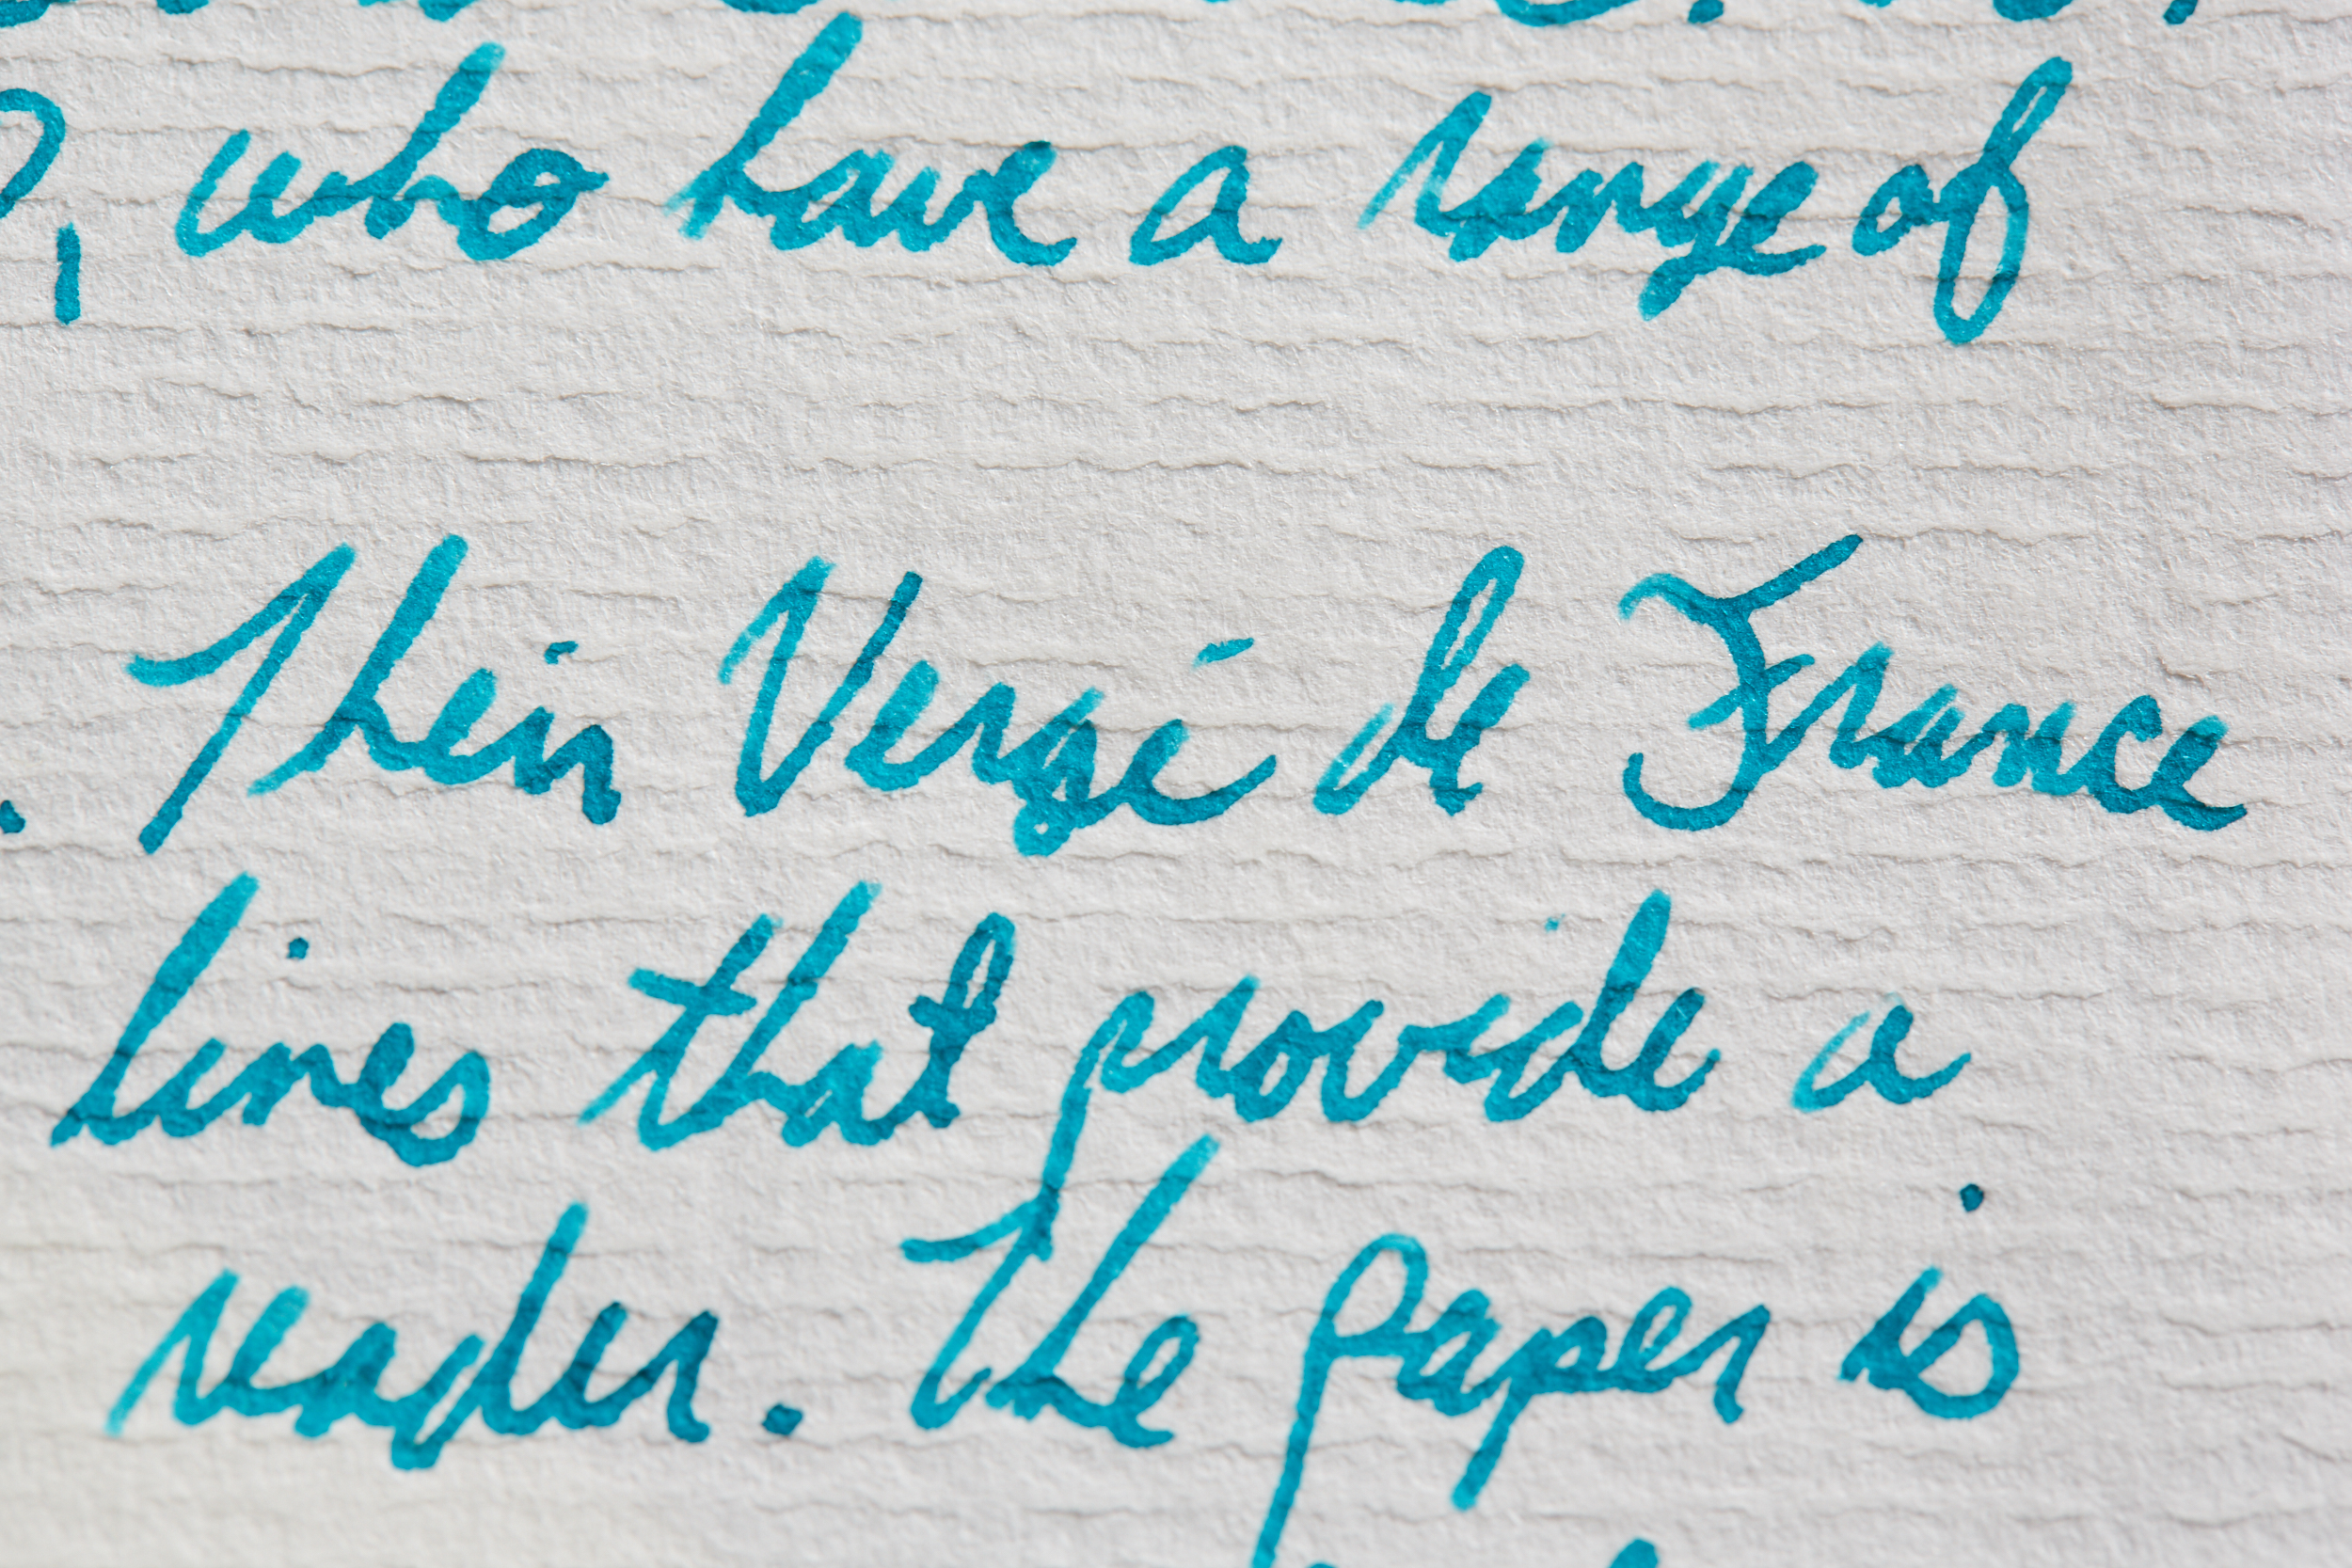 , who have a range of
Their Vergé de France
lines that provide a
reader. The paper is